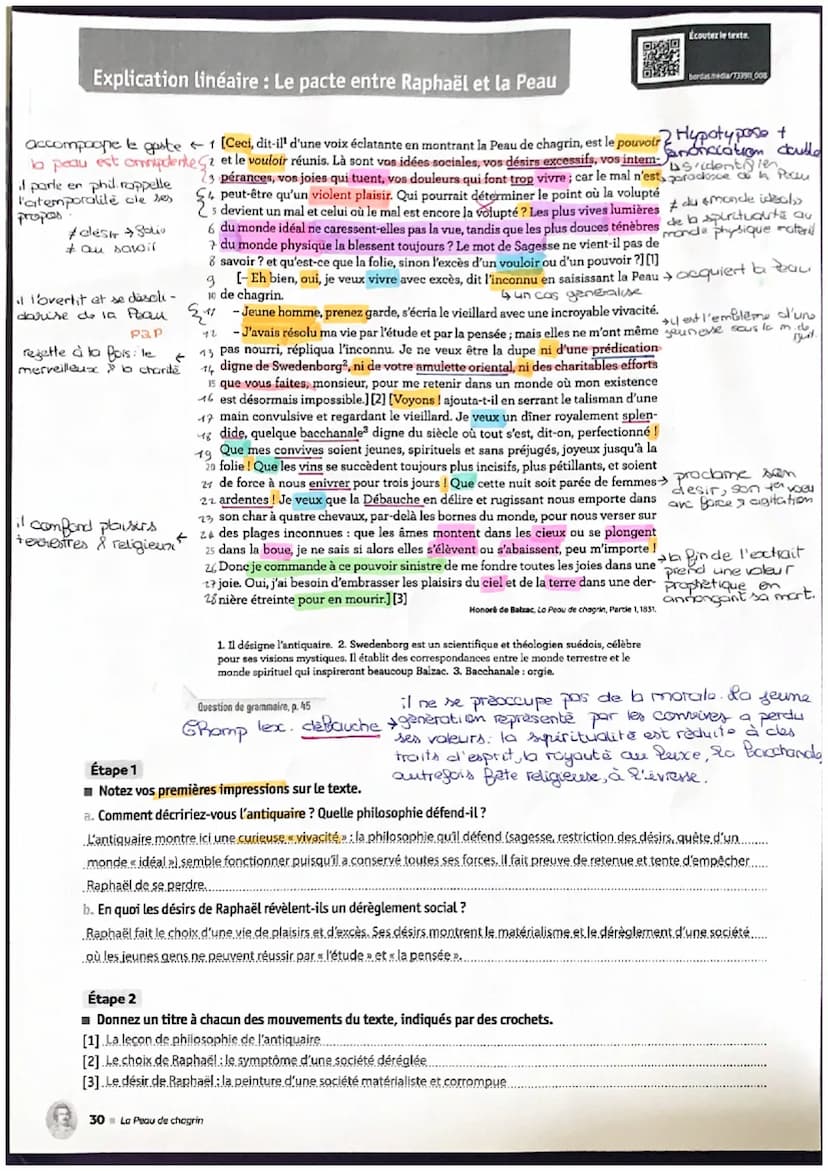 Écoutez le texte.
bordas.média/733911_008
Explication linéaire : Le pacte entre Raphaël et la Peau
accompagne le geste ← 1 [Ceci, dit-il¹ d'une voix éclatante en montrant la Peau de chagrin, est le pouvoir
la peau est omnipotente 2 et le vouloir réunis. Là sont vos idées sociales, vos désirs excessifs, vos intem-
3 pérances, vos joies qui tuent, vos douleurs qui font trop vivre ; car le mal n'est
4 peut-être qu'un violent plaisir. Qui pourrait déterminer le point où la volupté
5 devient un mal et celui où le mal est encore la volupté ? Les plus vives lumières
6 du monde idéal ne caressent-elles pas la vue, tandis que les plus douces ténèbres
7 du monde physique la blessent toujours ? Le mot de Sagesse ne vient-il pas de
8 savoir ? et qu'est-ce que la folie, sinon l'excès d'un vouloir ou d'un pouvoir ?] [1]
9 [– Eh bien, oui, je veux vivre avec excès, dit l'inconnu en saisissant la Peau → acquiert la Peau
10 de chagrin.
↳ un cas généralisé
11 – Jeune homme, prenez garde, s'écria le vieillard avec une incroyable vivacité.
12 – J'avais résolu ma vie par l'étude et par la pensée ; mais elles ne m'ont même
13 pas nourri, répliqua l'inconnu. Je ne veux être la dupe ni d'une prédication
14 digne de Swedenborg², ni de votre amulette oriental, ni des charitables efforts
15 que vous faites, monsieur, pour me retenir dans un monde où mon existence
16 est désormais impossible.] [2] [Voyons ! ajouta-t-il en serrant le talisman d'une
17 main convulsive et regardant le vieillard. Je veux un dîner royalement splen-
18 dide, quelque bacchanale³ digne du siècle où tout s'est, dit-on, perfectionné !
19 Que mes convives soient jeunes, spirituels et sans préjugés, joyeux jusqu'à la
20 folie ! Que les vins se succèdent toujours plus incisifs, plus pétillants, et soient
21 de force à nous enivrer pour trois jours ! Que cette nuit soit parée de femmes
22 ardentes ! Je veux que la Débauche en délire et rugissant nous emporte dans
23 son char à quatre chevaux, par-delà les bornes du monde, pour nous verser sur
24 des plages inconnues : que les âmes montent dans les cieux ou se plongent
25 dans la boue, je ne sais si alors elles s'élèvent ou s'abaissent, peu m'importe !
26 Donc je commande à ce pouvoir sinistre de me fondre toutes les joies dans une
27 joie. Oui, j'ai besoin d'embrasser les plaisirs du ciel et de la terre dans une der-
28 nière étreinte pour en mourir.] [3]
Honoré de Balzac, La Peau de chagrin, Partie 1, 1831.
il parle en phil. rappelle
l'atemporalité de ses
propos.
≠ désir → folie
≠ au savoir
il l'avertit et se désoli-
darise de la Peau
rejette à la fois : le
merveilleux & la charité
il confond plaisirs
terrestres & religieux
Hypotypose +
énonciation double
paradoxe de la Peau
≠ du « monde idéal »
de la spiritualité au
monde physique matériel
↳ il est l'emblème d'une
jeunesse sous la m. de
→ proclame son
désir, son 1er voeu
avc force & agitation
↳ la fin de l'extrait
prend une valeur
prophétique en
annonçant sa mort.
1. Il désigne l'antiquaire. 2. Swedenborg est un scientifique et théologien suédois, célèbre
pour ses visions mystiques. Il établit des correspondances entre le monde terrestre et le
monde spirituel qui inspireront beaucoup Balzac. 3. Bacchanale : orgie.
Question de grammaire, p. 45
Champ lex. débauche → il ne se préoccupe pas de la morale. La jeune
génération représenté par les convives a perdu
ses valeurs : la spiritualité est réduite à des
traits d'esprit, la royauté au luxe, la Bacchanale,
autrefois fête religieuse, à l'ivresse.
Étape 1
■ Notez vos premières impressions sur le texte.
a. Comment décririez-vous l'antiquaire ? Quelle philosophie défend-il ?
L'antiquaire montre ici une curieuse « vivacité » : la philosophie qu'il défend (sagesse, restriction des désirs, quête d'un
monde « idéal ») semble fonctionner puisqu'il a conservé toutes ses forces. Il fait preuve de retenue et tente d'empêcher
Raphaël de se perdre.
b. En quoi les désirs de Raphaël révèlent-ils un dérèglement social ?
Raphaël fait le choix d'une vie de plaisirs et d'excès. Ses désirs montrent le matérialisme et le dérèglement d'une société
où les jeunes gens ne peuvent réussir par « l'étude » et « la pensée ».
Étape 2
■ Donnez un titre à chacun des mouvements du texte, indiqués par des crochets.
[1] La leçon de philosophie de l'antiquaire
[2] Le choix de Raphaël : le symptôme d'une société déréglée
[3] Le désir de Raphaël : la peinture d'une société matérialiste et corrompue
30 ■ La Peau de chagrin